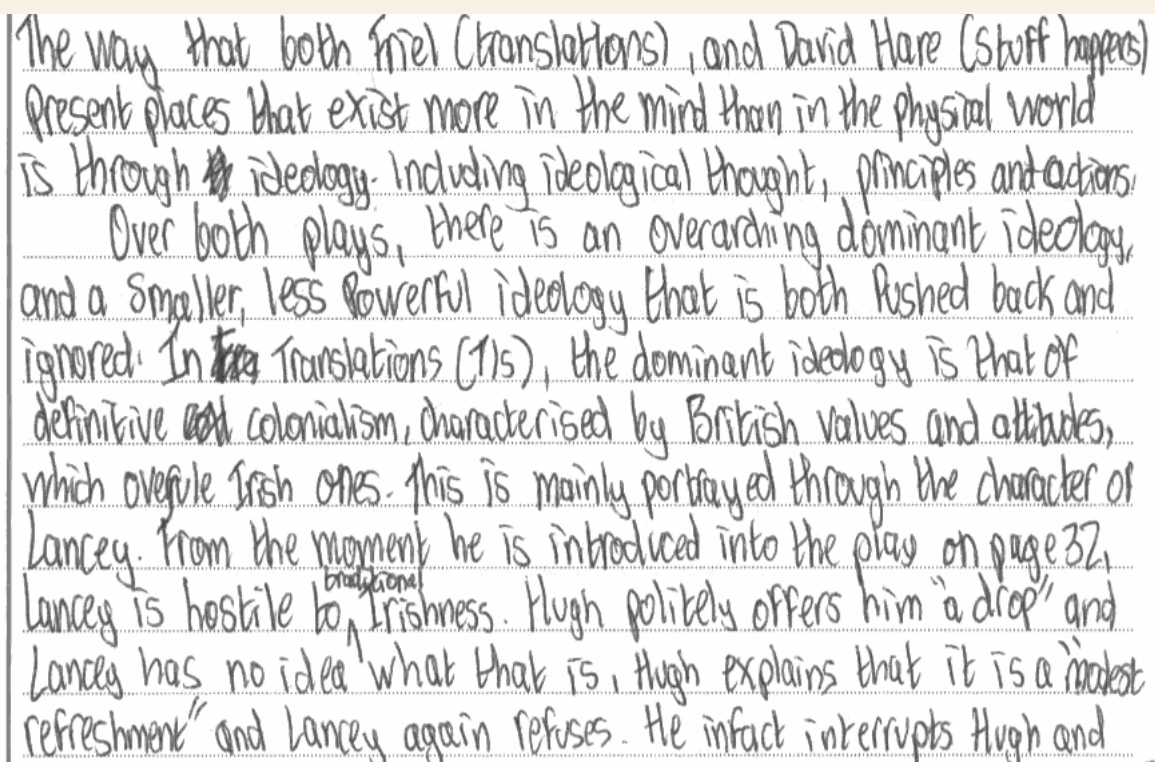 The way that both Friel (translations), and David Hare (stuff happens)
present places that exist more in the mind than in the physical world
is through ideology. Including ideological thought, principles and actions.
Over both plays, there is an overarching dominant ideology,
and a smaller, less powerful ideology that is both pushed back and
ignored. In Translations (T/s), the dominant ideology is that of
definitive colonialism, characterised by British values and attitudes,
which overule Irish ones. This is mainly portrayed through the character of
Lancey. From the moment he is introduced into the play on page 32,
Lancey is hostile to traditional Irishness. Hugh politely offers him "a drop" and
Lancey has no idea what that is, Hugh explains that it is a "modest
refreshment" and Lancey again refuses. He infact interrupts Hugh and